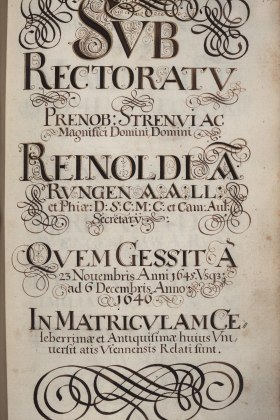 SVB
RECTORATV
PRENOB: STRENVI AC
Magnifici Domini Domini
REINOLDI Ã
RVNGEN A: A: LL:
et Phiæ: D: S: C: M: C: et Cam: Aul:
Secretary
QVEM GESSIT À
23 Nouembris Anni 1645 Vsq3
ad 6 Decembris Anno:
1646
IN MATRICVLAM CE
leberrimæ et Antiquissimæ huius Vni
uersitatis Viennensis Relati sunt.